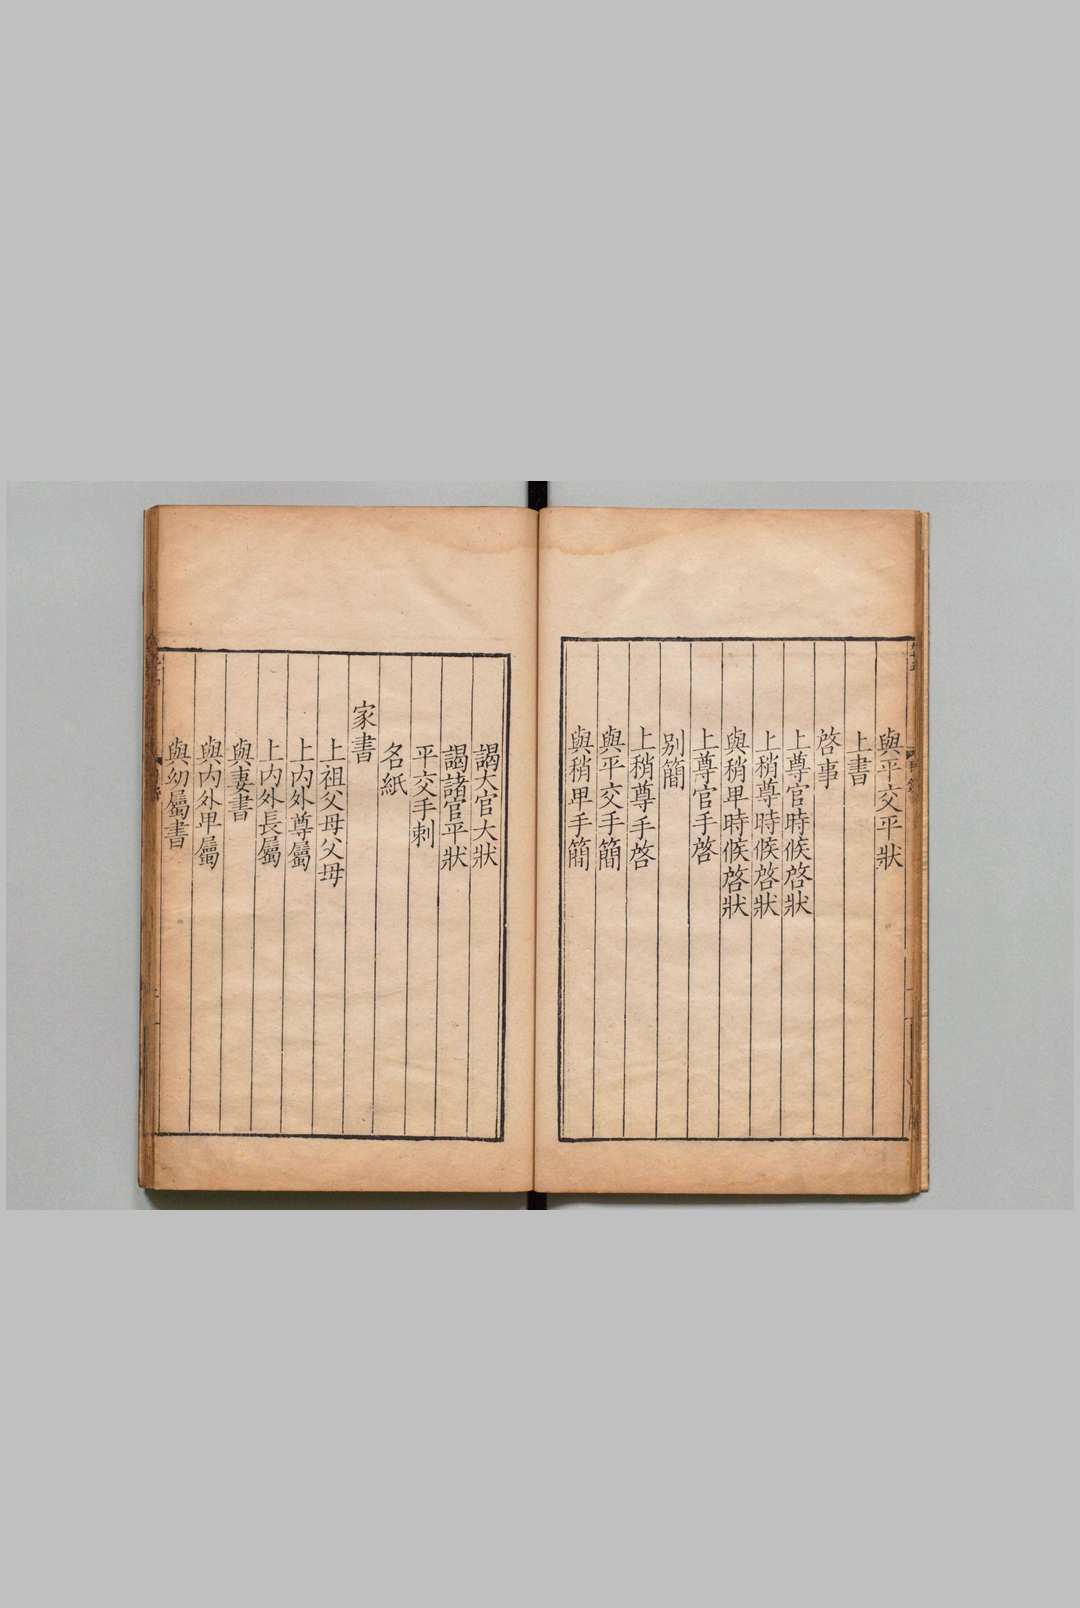 與平交平狀
上書
啓事
上尊官時候啓狀
上稍尊時候啓狀
與稍卑時候啓狀
上尊官手啓
别簡
上稍尊手啓
與平交手簡
與稍卑手簡
謁大官大狀
謁諸官平狀
平交手刺
名紙
家書
上祖父母父母
上內外尊屬
上內外長屬
與妻書
與內外卑屬
與幼屬書